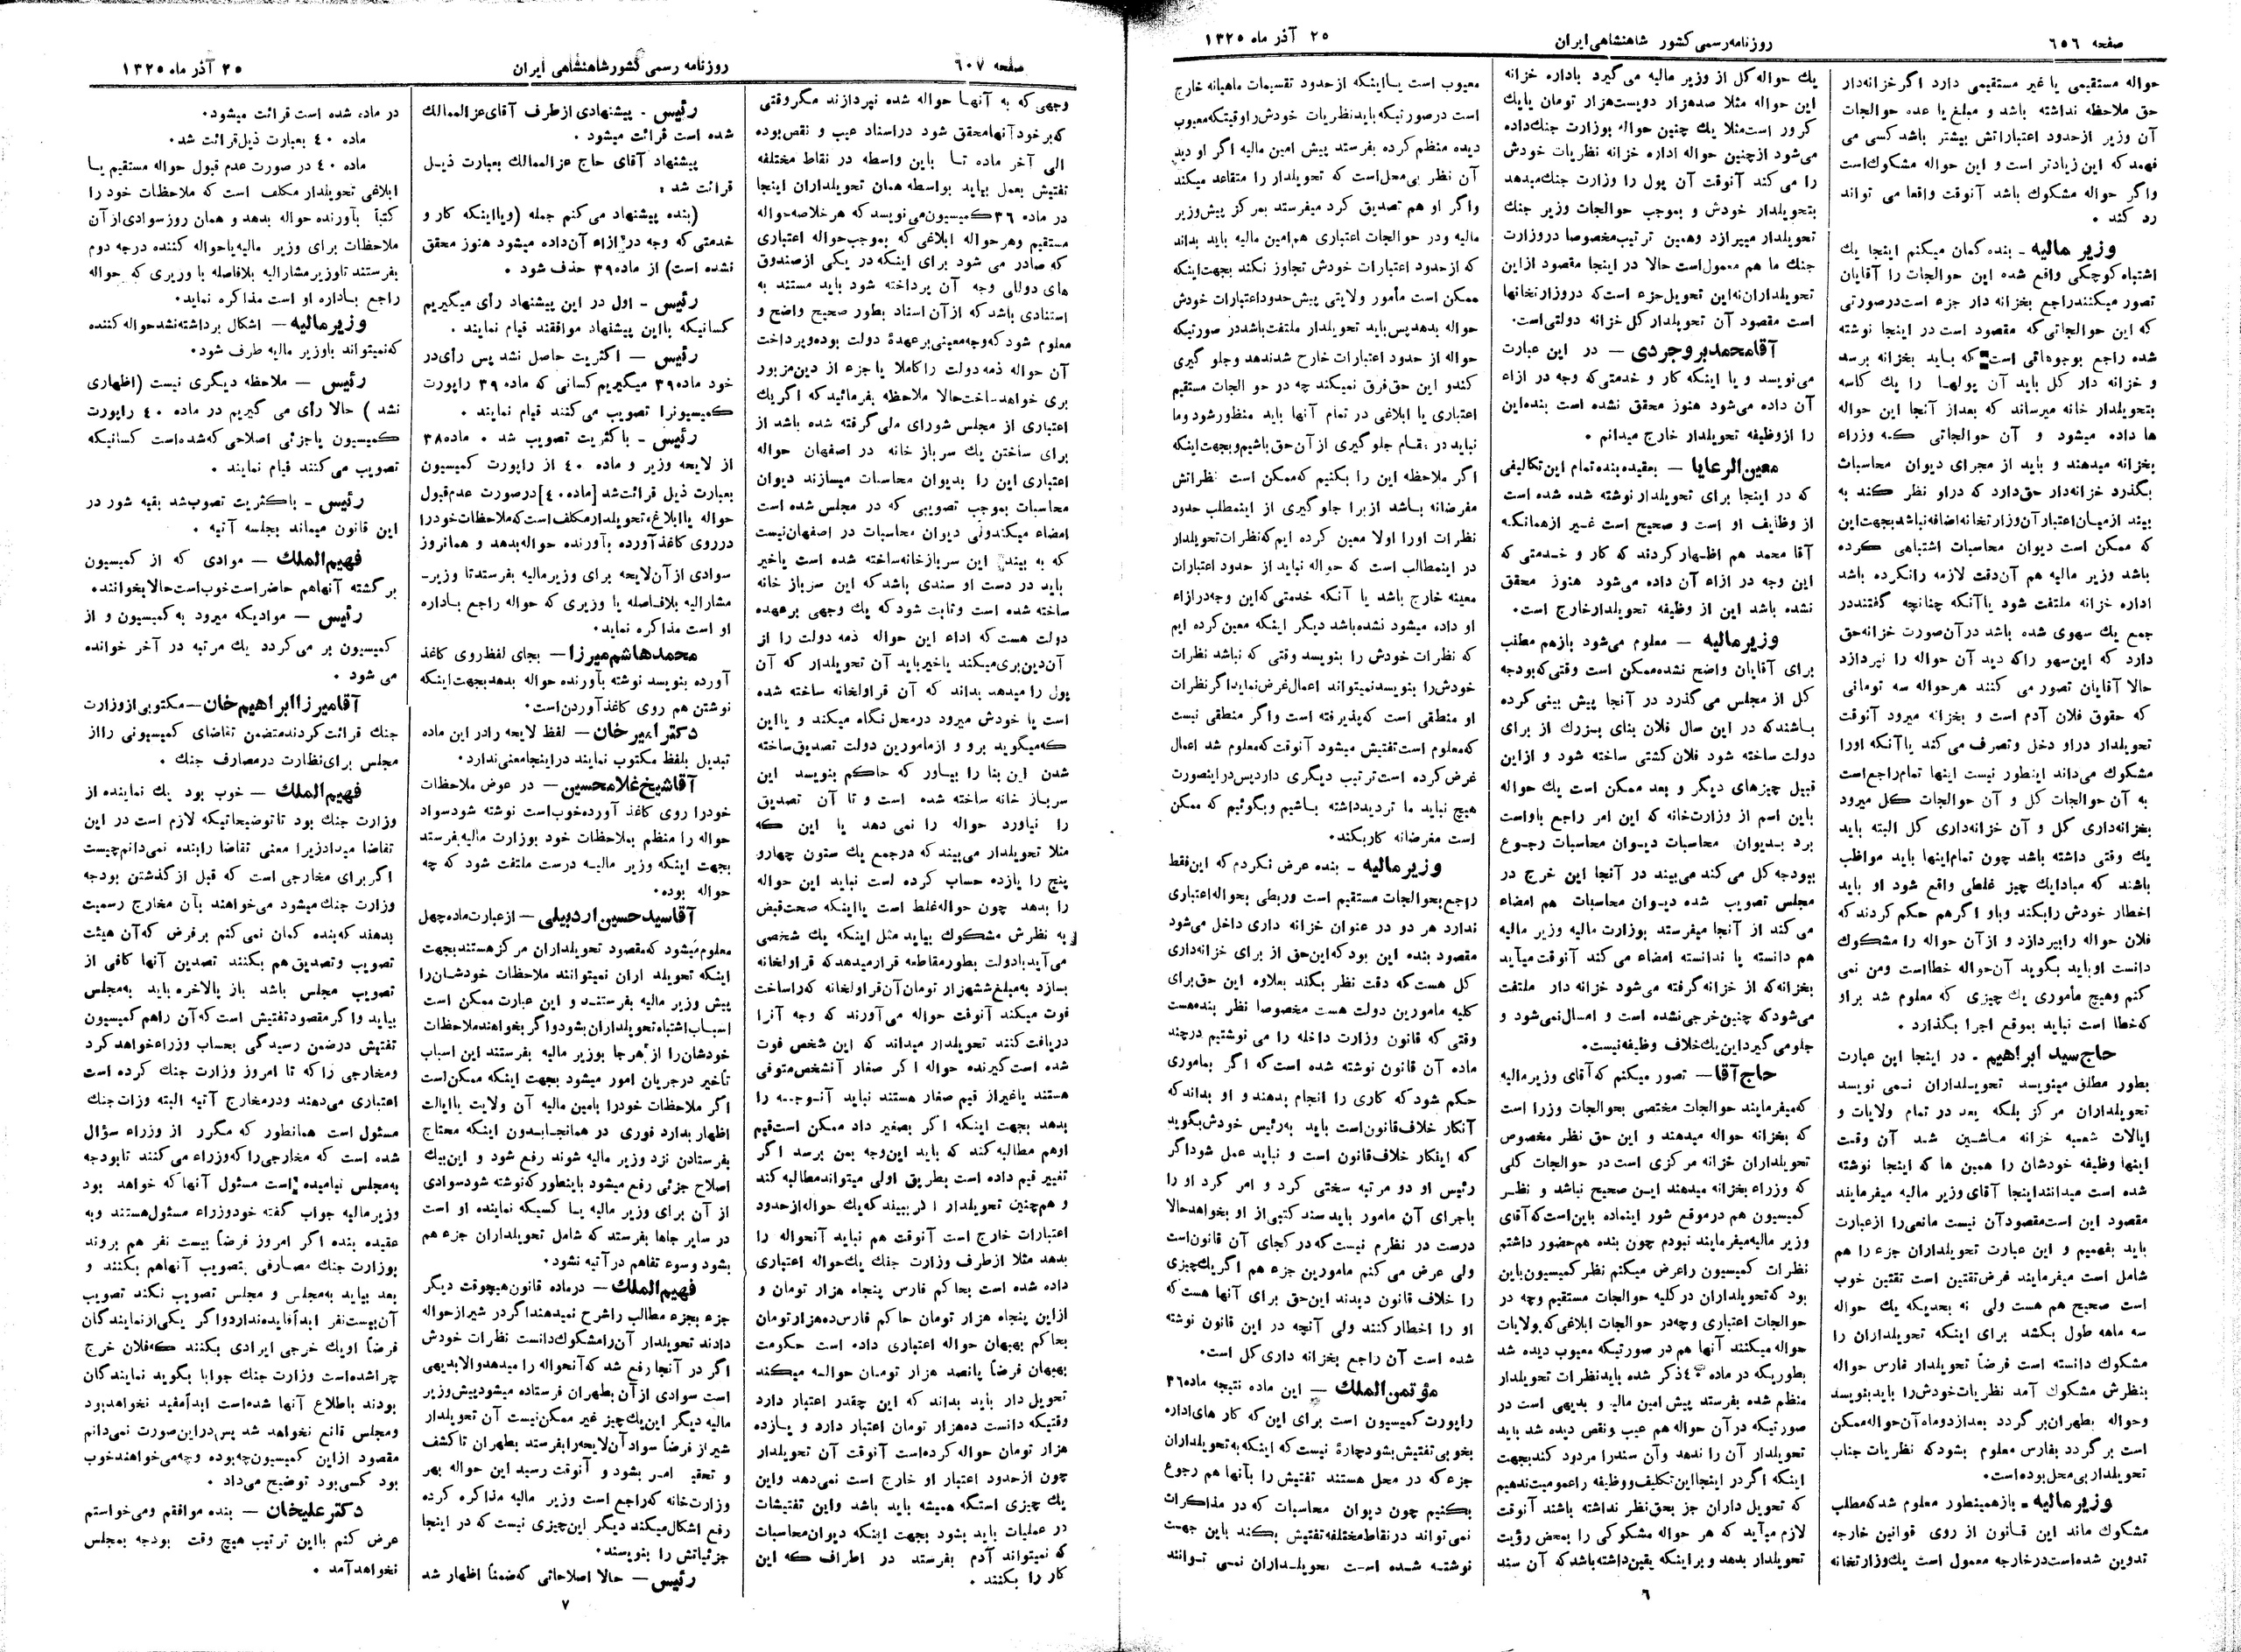 صفحه ٦٥٦
روزنامه رسمی کشور شاهنشاهی ایران
٢٥ آذر ماه ١٣٢٥
حواله مستقیمی یا غیر مستقیمی دارد اگر خزانه‌دار
حق ملاحظه نداشته باشد و مبلغ یا عده حوالجات
آن وزیر از حدود اعتباراتش بیشتر باشد کسی می
فهمد که این زیادتر است و این حواله مشکوک است
واگر حواله مشکوک باشد آنوقت واقعا می تواند
رد کند .
وزیر مالیه ـ بنده گمان میکنم اینجا یك
اشتباه کوچکی واقع شده این حوالجات را آقایان
تصور میکنند راجع بخزانه دار جزء است در صورتی
که این حوالجاتی که مقصود است در اینجا نوشته
شده راجع بوجوهاتی است که باید بخزانه برسد
و خزانه دار کل باید آن پولها را یك کاسه
بتحویلدار خانه میرساند که بعد از آنجا این حواله
ها داده میشود و آن حوالجاتی که وزراء
بخزانه میدهند و باید از مجرای دیوان محاسبات
بگذرد خزانه‌دار حق دارد که در او نظر کند به
بیند از میان اعتبار آن وزارتخانه اضافه نباشد بجهت این
که ممکن است دیوان محاسبات اشتباهی کرده
باشد وزیر مالیه هم آن دقت لازمه را نکرده باشد
اداره خزانه ملتفت شود یا آنکه چنانچه گفتند در
جمع یك سهوی شده باشد در آن صورت خزانه حق
دارد که این سهو را که دید آن حواله را نپردازد
حالا آقایان تصور می کنند هر حواله سه تومانی
که حقوق فلان آدم است و بخزانه میرود آنوقت
تحویلدار در او دخل و تصرف می کند یا آنکه او را
مشکوک می‌داند اینطور نیست اینها تمام راجع است
به آن حوالجات کل و آن حوالجات کل میرود
بخزانه‌داری کل و آن خزانه‌داری کل البته باید
یك وقتی داشته باشد چون تمام اینها باید مواظب
باشند که مبادا یك چیز غلطی واقع شود او باید
اخطار خودش را بکند و باو اگر هم حکم کردند که
فلان حواله را بپردازد و از آن حواله را مشکوک
دانست او باید بگوید آن حواله خطا است و من نمی
کنم و هیچ مأموری یك چیزی که معلوم شد بر او
که خطا است نباید بموقع اجرا بگذارد .
حاج سید ابراهیم . در اینجا این عبارت
بطور مطلق مینویسد تحویلداران نمی نویسد
تحویلداران مرکز بلکه بعد در تمام ولایات و
ایالات شعبه خزانه ماشین شد آن وقت
اینها وظیفه خودشان را همین ها که اینجا نوشته
شده است میدانند اینجا آقای وزیر مالیه میفرمایند
مقصود این است مقصود آن نیست مانعی را از عبارت
باید بفهمیم و این عبارت تحویلداران جزء را هم
شامل است میفرمایند غرض تفتین است تفتین خوب
است صحیح هم هست ولی نه بحدیکه یك حواله
سه ماهه طول بکشد برای اینکه تحویلداران را
مشکوک دانسته است فرضاً تحویلدار فارس حواله
بنظرش مشکوک آمد نظریات خودش را باید بنویسد
وحواله بطهران برگردد بعد از دو ماه آن حواله ممکن
است برگردد بفارس معلوم بشود که نظریات جناب
تحویلدار بی محل بوده است.
وزیر مالیه ـ باز همینطور معلوم شد که مطلب
مشکوک ماند این قانون از روی قوانین خارجه
تدوین شده است در خارجه معمول است یك وزارتخانه
یك حواله کل از وزیر مالیه می گیرد باداره خزانه
این حواله مثلا صد هزار دویست هزار تومان یا یك
کرور است مثلا یك چنین حواله بوزارت جنك داده
می‌شود از چنین حواله اداره خزانه نظریات خودش
را می کند آنوقت آن پول را وزارت جنك میدهد
بتحویلدار خودش و بموجب حوالجات وزیر جنك
تحویلدار میپرازد وهمین ترتیب مخصوصا در وزارت
جنك ما هم معمول است حالا در اینجا مقصود از این
تحویلداران نه این تحویل جزء است که در وزارتخانها
است مقصود آن تحویلدار کل خزانه دولتی است.
آقا محمد بروجردی ـ در این عبارت
می‌نویسد و یا اینکه کار و خدمتی که وجه در ازاء
آن داده می‌شود هنوز محقق نشده است بنده این
را از وظیفه تحویلدار خارج میدانم .
معین الرعایا ـ بعقیده بنده تمام این تکالیفی
که در اینجا برای تحویلدار نوشته شده شده است
از وظایف او است و صحیح است غیر از همانکه
آقا محمد هم اظهار کردند که کار و خدمتی که
این وجه در ازاء آن داده می‌شود هنوز محقق
نشده باشد این از وظیفه تحویلدار خارج است.
وزیر مالیه ـ معلوم می‌شود باز هم مطلب
برای آقایان واضح نشده ممکن است وقتی که بودجه
کل از مجلس می گذرد در آنجا پیش بینی کرده
باشند که در این سال فلان بنای بزرك از برای
دولت ساخته شود فلان کشتی ساخته شود و از این
قبیل چیزهای دیگر و بعد ممکن است یك حواله
باین اسم از وزارت خانه که این امر راجع باو است
برد بدیوان محاسبات دیوان محاسبات رجوع
ببودجه کل می کند می بیند در آنجا این خرج در
مجلس تصویب شده دیوان محاسبات هم امضاء
می کند از آنجا میفرستد بوزارت مالیه وزیر مالیه
هم دانسته یا ندانسته امضاء می کند آنوقت میآید
بخزانه که از خزانه گرفته می‌شود خزانه دار ملتفت
می‌شود که چنین خرجی نشده است و امسال نمی‌شود و
جلو می گیرد این یك خلاف وظیفه نیست.
حاج آقا ـ تصور میکنم که آقای وزیر مالیه
که میفرمایند حوالجات مختصی بحوالجات وزرا است
که بخزانه حواله میدهند و این حق نظر مخصوص
تحویلداران خزانه مرکزی است در حوالجات کلی
که وزراء بخزانه میدهند این صحیح نباشد و نظر
کمیسیون هم در موقع شور اینماده باین است که آقای
وزیر مالیه میفرمایند نبودم چون بنده هم حضور داشتم
نظرات کمیسیون را عرض میکنم نظر کمیسیون باین
بود که تحویلداران در کلیه حوالجات مستقیم وچه در
حوالجات اعتباری وچه در حوالجات ابلاغی که بولایات
حواله میکنند آنها هم در صورتیکه معیوب دیده شد
بطوریکه در ماده ٤٠ ذکر شده باید نظرات تحویلدار
منظم شده بفرستد پیش امین مالیه و بدیهی است در
صورتیکه در آن حواله هم عیب و نقص دیده شد باید
تحویلدار آن را ندهد وآن سند را مردود کند بجهت
اینکه اگر در اینجا این تکلیف و وظیفه را عمومیت ندهیم
که تحویل داران جز بحق نظر نداشته باشند آنوقت
لازم میآید که هر حواله مشکوکی را بمحض رؤیت
تحویلدار بدهد و بر اینکه یقین داشته باشد که آن سند
معیوب است یا اینکه از حدود تقسیمات ماهیانه خارج
است در صورتیکه باید نظریات خودش را وقتیکه معیوب
دیده منظم کرده بفرستد پیش امین مالیه اگر او دید
آن نظر بی محل است که تحویلدار را متقاعد میکند
واگر او هم تصدیق کرد میفرستد بمرکز پیش وزیر
مالیه ودر حوالجات اعتباری هم امین مالیه باید بداند
که از حدود اعتبارات خودش تجاوز نکند بجهت اینکه
ممکن است مأمور ولایتی بیش حدود اعتبارات خودش
حواله بدهد پس باید تحویلدار ملتفت باشد در صورتیکه
حواله از حدود اعتبارات خارج شد ندهد و جلو گیری
کند و این حق فرق نمیکند چه در حوالجات مستقیم
اعتباری یا ابلاغی در تمام آنها باید منظور شود وما
نباید در مقام جلو گیری از آن حق باشیم و بجهت اینکه
اگر ملاحظه این را بکنیم که ممکن است نظراتش
مغرضانه باشد از برا جلو گیری از اینمطلب حدود
نظرات او را اولا معین کرده ایم که نظرات تحویلدار
در اینمطالب است که حواله نباید از حدود اعتبارات
معینه خارج باشد یا آنکه خدمتی که این وجه در ازاء
او داده میشود نشده باشد دیگر اینکه معین کرده ایم
که نظرات خودش را بنویسد وقتی که نباشد نظرات
خودش را بنویسد نمیتواند اعمال غرض نماید اگر نظرات
او منطقی است که پذیرفته است واگر منطقی نیست
که معلوم است تفتیش میشود آنوقت که معلوم شد اعمال
غرض کرده است ترتیب دیگری دارد پس در اینصورت
هیچ نباید ما تردید داشته باشیم وبگوئیم که ممکن
است مغرضانه کار بکند.
وزیر مالیه ـ بنده عرض نکردم که این فقط
راجع بحوالجات مستقیم است وربطی بحواله اعتباری
ندارد هر دو در عنوان خزانه داری داخل می‌شود
مقصود بنده این بود که این حق از برای خزانه‌داری
کل هست که دقت نظر بکند بعلاوه این حق برای
کلیه مامورین دولت هست مخصوصا نظر بنده هست
وقتی که قانون وزارت داخله را می نوشتیم در چند
ماده آن قانون نوشته شده است که اگر بماموری
حکم شود که کاری را انجام بدهند و او بداند که
آنکار خلاف قانون است باید به رئیس خودش بگوید
که اینکار خلاف قانون است و نباید عمل شود اگر
رئیس او دو مرتبه سختی کرد و امر کرد او را
باجرای آن مامور باید سند کتبی از او بخواهد حالا
درست در نظرم نیست که در کجای آن قانون است
ولی عرض می کنم مامورین جزء هم اگر یك چیزی
را خلاف قانون دیدند این حق برای آنها هست که
او را اخطار کنند ولی آنچه در این قانون نوشته
شده است آن راجع بخزانه داری کل است.
مؤتمن الملك ـ این ماده نتیجه ماده ٣٦
راپورت کمیسیون است برای این که کار های اداره
بخوبی تفتیش بشود چارهٔ نیست که اینکه به تحویلداران
جزء که در محل هستند تفتیش را بآنها هم رجوع
بکنیم چون دیوان محاسبات که در مذاکرات
نمی تواند در نقاط مختلفه تفتیش بکند باین جهت
نوشته شده است تحویلداران نمی توانند
٦
صفحه ٦٠٧
روزنامه رسمی کشور شاهنشاهی ایران
٢٥ آذر ماه ١٣٢٥
وجهی که به آنها حواله شده نپردازند مگر وقتی
که بر خود آنها محقق شود در اسناد عیب و نقص بوده
الی آخر ماده تا باین واسطه در نقاط مختلفه
تفتیش بعمل بیاید بواسطه همان تحویلداران اینجا
در ماده ٣٦ کمیسیون می نویسد که هر خلاصه حواله
مستقیم وهر حواله ابلاغی که بموجب حواله اعتباری
که صادر می شود برای اینکه در یکی از صندوق
های دولتی وجه آن پرداخته شود باید مستند به
اسنادی باشد که از آن اسناد بطور صحیح واضح و
معلوم شود که وجه معینی بر عهدهٔ دولت بوده و پرداخت
آن حواله ذمه دولت را کاملا یا جزء از دین مزبور
بری خواهد ساخت حالا ملاحظه بفرمائید که اگر یك
اعتباری از مجلس شورای ملی گرفته شده باشد از
برای ساختن یك سرباز خانه در اصفهان حواله
اعتباری این را بدیوان محاسبات میسازند دیوان
محاسبات بموجب تصویبی که در مجلس شده است
امضاء میکند ولی دیوان محاسبات در اصفهان نیست
که به بیند این سربازخانه ساخته شده است یا خیر
باید در دست او سندی باشد که این سرباز خانه
ساخته شده است وثابت شود که یك وجهی بر عهده
دولت هست که اداء این حواله ذمه دولت را از
آن دین بری میکند یا خیر باید آن تحویلدار که آن
پول را میدهد بداند که آن قراولخانه ساخته شده
است یا خودش میرود در محل نگاه میکند و یا این
که میگوید برو و از مامورین دولت تصدیق ساخته
شدن این بنا را بیاور که حاکم بنویسد این
سرباز خانه ساخته شده است و تا آن تصدیق
را نیاورد حواله را نمی دهد یا این که
مثلا تحویلدار می بیند که در جمع یك ستون چهار و
پنج را یازده حساب کرده است نباید این حواله
را بدهد چون حواله غلط است یا اینکه صحت قبض
به نظرش مشکوک بیاید مثل اینکه یك شخصی
می آید با دولت بطور مقاطعه قرار میدهد که قراولخانه
بسازد به مبلغ ششهزار تومان آن قراولخانه که را ساخت
فوت میکند آنوقت حواله می‌آورند که وجه آنرا
دریافت کنند تحویلدار میداند که این شخص فوت
شده است گیرنده حواله اگر صغار آنشخص متوفی
هستند یا غیر از قیم صغار هستند نباید آنوجه را
بدهد بجهت اینکه اگر بصغیر داد ممکن است قیم
او هم مطالبه کند که باید این وجه بمن برسد اگر
تغییر قیم داده است بطریق اولی میتواند مطالبه کند
و هم چنین تحویلدار اگر ببیند که یك حواله از حدود
اعتبارات خارج است آنوقت هم نباید آنحواله را
بدهد مثلا از طرف وزارت جنك یك حواله اعتباری
داده شده است بحاکم فارس پنجاه هزار تومان و
از این پنجاه هزار تومان حاکم فارس ده هزار تومان
بحاکم بهبهان حواله اعتباری داده است حکومت
بهبهان فرضاً پانصد هزار تومان حواله میکند
تحویل دار باید بداند که این چقدر اعتبار دارد
وقتیکه دانست ده هزار تومان اعتبار دارد و یازده
هزار تومان حواله کرده است آنوقت آن تحویلدار
چون از حدود اعتبار او خارج است نمی دهد و این
یك چیزی است که همیشه باید باشد و این تفتیشات
در عملیات باید بشود بجهت اینکه دیوان محاسبات
که نمیتواند آدم بفرستد در اطراف که این
کار را بکنند .
رئیس . پیشنهادی از طرف آقای عزالممالك
شده است قرائت میشود .
پیشنهاد آقای حاج عزالممالك بعبارت ذیل
قرائت شد :
(بنده پیشنهاد می کنم جمله (ویا اینکه کار و
خدمتی که وجه در ازاء آن داده میشود هنوز محقق
نشده است) از ماده ٣٩ حذف شود .
رئیس ـ اول در این پیشنهاد رأی میگیریم
کسانیکه با این پیشنهاد موافقند قیام نمایند .
رئیس ـ اکثریت حاصل نشد پس رأی در
خود ماده ٣٩ میگیریم کسانی که ماده ٣٩ راپورت
کمیسیونرا تصویب می کنند قیام نمایند .
رئیس ـ باکثریت تصویب شد . ماده ٣٨
از لایحه وزیر و ماده ٤٠ از راپورت کمیسیون
بعبارت ذیل قرائت شد [ماده ٤٠] در صورت عدم قبول
حواله یا ابلاغ، تحویلدار مکلف است که ملاحظات خود را
در روی کاغذ آورده بآورنده حواله بدهد و همانروز
سوادی از آن لایحه برای وزیر مالیه بفرستد تا وزیر ـ
مشارالیه بلافاصله با وزیری که حواله راجع باداره
او است مذاکره نماید.
محمد هاشم میرزا ـ بجای لفظ روی کاغذ
آورده بنویسد نوشته بآورنده حواله بدهد بجهت اینکه
نوشتن هم روی کاغذ آوردن است.
دکتر امیر خان ـ لفظ لایحه را در این ماده
تبدیل بلفظ مکتوب نمایند در اینجا معنی ندارد.
آقا شیخ غلامحسین ـ در عوض ملاحظات
خود را روی کاغذ آورده خوب است نوشته شود سواد
حواله را منظم بملاحظات خود بوزارت مالیه بفرستد
بجهت اینکه وزیر مالیه درست ملتفت شود که چه
حواله بوده.
آقا سید حسین اردبیلی ـ از عبارت ماده چهل
معلوم میشود که مقصود تحویلداران مرکز هستند بجهت
اینکه تحویلداران نمیتوانند ملاحظات خودشان را
پیش وزیر مالیه بفرستند و این عبارت ممکن است
اسباب اشتباه تحویلداران بشود واگر بخواهند ملاحظات
خودشان را از هر جا بوزیر مالیه بفرستند این اسباب
تأخیر در جریان امور میشود بجهت اینکه ممکن است
اگر ملاحظات خود را بامین مالیه آن ولایت یا ایالت
اظهار بدارد فوری در همانجا بدون اینکه محتاج
بفرستادن نزد وزیر مالیه شوند رفع شود و این بیك
اصلاح جزئی رفع میشود باینطور که نوشته شود سوادی
از آن برای وزیر مالیه یا کسیکه نماینده او است
در سایر جاها بفرستد که شامل تحویلداران جزء هم
بشود وسوء تفاهم در آتیه نشود.
فهیم الملك ـ در ماده قانون هیچوقت دیگر
جزء بجزء مطالب را شرح نمیدهند اگر در شیراز حواله
دادند تحویلدار آن را مشکوک دانست نظرات خودش
اگر در آنجا رفع شد که آنحواله را میدهد والا بدیهی
است سوادی از آن بطهران فرستاده میشود پیش وزیر
مالیه دیگر این یك چیز غیر ممکن نیست آن تحویلدار
شیراز فرضاً سواد آن لایحه را بفرستد بطهران تا کشف
و تحقیق امر بشود و آنوقت رسید این حواله بهر
وزارت خانه که راجع است وزیر مالیه مذاکره کرده
رفع اشکال میکند دیگر این چیزی نیست که در اینجا
جزئیاتش را بنویسند.
رئیس ـ حالا اصلاحاتی که ضمناً اظهار شد
در ماده شده است قرائت میشود.
ماده ٤٠ بعبارت ذیل قرائت شد.
ماده ٤٠ در صورت عدم قبول حواله مستقیم یا
ابلاغی تحویلدار مکلف است که ملاحظات خود را
کتباً بآورنده حواله بدهد و همان روز سوادی از آن
ملاحظات برای وزیر مالیه یا حواله کننده درجه دوم
بفرستند تا وزیر مشارالیه بلافاصله با وزیری که حواله
راجع باداره او است مذاکره نماید.
وزیر مالیه ـ اشکال برداشته نشد حواله کننده
که نمیتواند با وزیر مالیه طرف شود.
رئیس ـ ملاحظه دیگری نیست (اظهاری
نشد ) حالا رأی می گیریم در ماده ٤٠ راپورت
کمیسیون یا جزئی اصلاحی که شده است کسانیکه
تصویب می کنند قیام نمایند .
رئیس ـ باکثریت تصویب شد بقیه شور در
این قانون میماند بجلسه آتیه .
فهیم الملك ـ موادی که از کمیسیون
برگشته آنها هم حاضر است خوب است حالا بخوانند
رئیس ـ موادیکه میرود به کمیسیون و از
کمیسیون بر می گردد یك مرتبه در آخر خوانده
می شود .
آقا میرزا ابراهیم خان ـ مکتوبی از وزارت
جنك قرائت کردند متضمن تقاضای کمیسیونی را از
مجلس برای نظارت در مصارف جنك .
فهیم الملك ـ خوب بود یك نماینده از
وزارت جنك بود تا توضیحاتیکه لازم است در این
تقاضا میداد زیرا معنی تقاضا را بنده نمی‌دانم چیست
اگر برای مخارجی است که قبل از گذشتن بودجه
وزارت جنك میشود می خواهند بآن مخارج رسمیت
بدهند که بنده گمان نمی کنم بر فرض که آن هیئت
تصویب وتصدیق هم بکنند تصدین آنها کافی از
تصویب مجلس باشد باز بالاخره باید به مجلس
بیاید واگر مقصود تفتیش است که آن را هم کمیسیون
تفتیش در ضمن رسیدگی بحساب وزراء خواهد کرد
ومخارجی را که تا امروز وزارت جنك کرده است
اعتباری می دهند ودر مخارج آتیه البته وزات جنك
مسئول است همانطور که مکرر از وزراء سؤال
شده است که مخارجی را که وزراء می کنند تا بودجه
به مجلس نیامیده است مسئول آنها که خواهد بود
وزیر مالیه جواب گفته خود وزراء مسئول هستند وبه
عقیده بنده اگر امروز فرضاً بیست نفر هم بروند
بوزارت جنك مصارفی بتصویب آنها هم بکنند و
بعد بیاید به مجلس و مجلس تصویب نکند تصویب
آن بیست نفر ابداً فایده ندارد واگر یکی از نمایندگان
فرضاً او یك خرجی ایرادی بکنند که فلان خرج
چرا شده است وزارت جنك جوابا بگوید نمایندگان
بودند باطلاع آنها شده است ابداً مفید نخواهد بود
ومجلس قانع نخواهد شد پس در این صورت نمی‌دانم
مقصود از این کمیسیون چه بوده وچه می خواهند خوب
بود کسی بود توضیح می داد .
دکتر علیخان ـ بنده موافقم ومی خواستم
عرض کنم با این ترتیب هیچ وقت بودجه بمجلس
نخواهد آمد .
٧